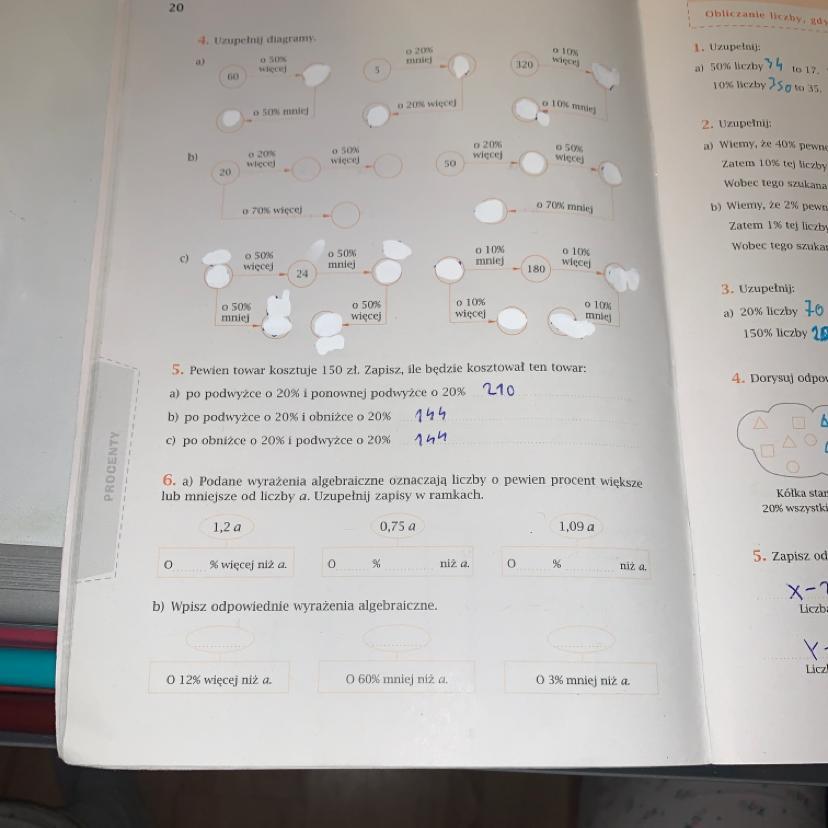 20
4. Uzupełnij diagramy.
a) 60 o 50% więcej o 50% mniej
5 o 20% mniej o 20% więcej
320 o 10% więcej o 10% mniej
b) 20 o 20% więcej o 50% więcej o 70% więcej
50 o 20% więcej o 50% więcej o 70% mniej
c) o 50% więcej 24 o 50% mniej
o 50% mniej o 50% więcej
o 10% mniej 180 o 10% więcej
o 10% więcej o 10% mniej
5. Pewien towar kosztuje 150 zł. Zapisz, ile będzie kosztował ten towar:
a) po podwyżce o 20% i ponownej podwyżce o 20% 210
b) po podwyżce o 20% i obniżce o 20% 144
c) po obniżce o 20% i podwyżce o 20% 144
PROCENTY
6. a) Podane wyrażenia algebraiczne oznaczają liczby o pewien procent większe
lub mniejsze od liczby a. Uzupełnij zapisy w ramkach.
1,2 a 0,75 a 1,09 a
O % więcej niż a. O % niż a. O % niż a.
b) Wpisz odpowiednie wyrażenia algebraiczne.
O 12% więcej niż a. O 60% mniej niż a. O 3% mniej niż a.
Obliczanie liczby, gdy
1. Uzupełnij:
a) 50% liczby 34 to 17.
10% liczby 350 to 35.
2. Uzupełnij:
a) Wiemy, że 40% pewne
Zatem 10% tej liczby
Wobec tego szukana
b) Wiemy, że 2% pewn
Zatem 1% tej liczby
Wobec tego szukan
3. Uzupełnij:
a) 20% liczby 70
150% liczby
4. Dorysuj odpow
Kółka star
20% wszystki
5. Zapisz od
x -
Liczba
Y
Licz